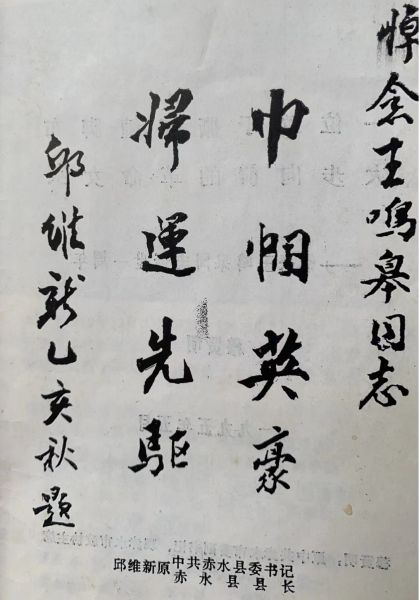 悼念王鳴皋同志
巾帼英豪
婦運先驅
邱维新乙亥秋题
邱维新原中共赤水县委书记
赤水县县长